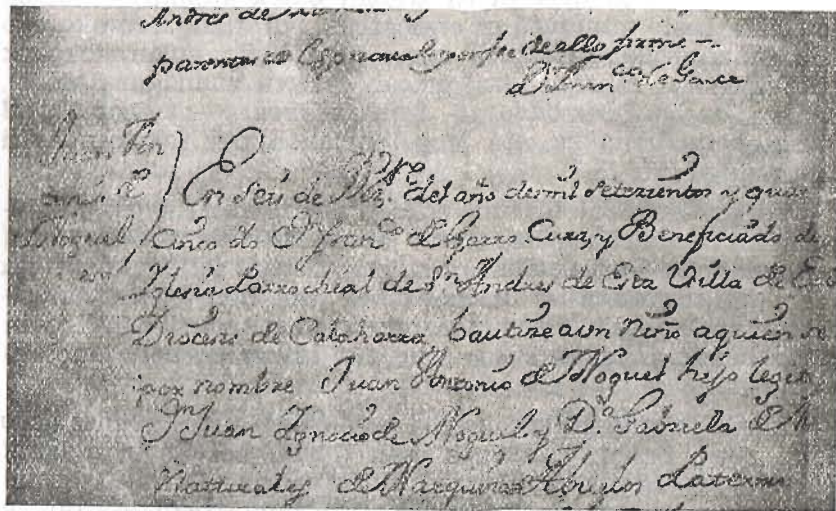 Andres de
parentesco Espiritual y por fee de ello firme –
Dn Franco de Garro
Juan An
Moguel
En Seis de Dizre del año de mil Setezientos y quar
cinco io Dn Franco de Garro Cura, y Beneficiado de
Iglesia Parrochial de Sn Andres de Esta Villa de E
Diocesis de Calahorra bautize a un Niño a quien se
por nombre Juan Antonio de Moguel hijo legit
Dn Juan Ignacio de Moguel y Da Gabriela de
Naturales de Marquina Abuelos Paternos